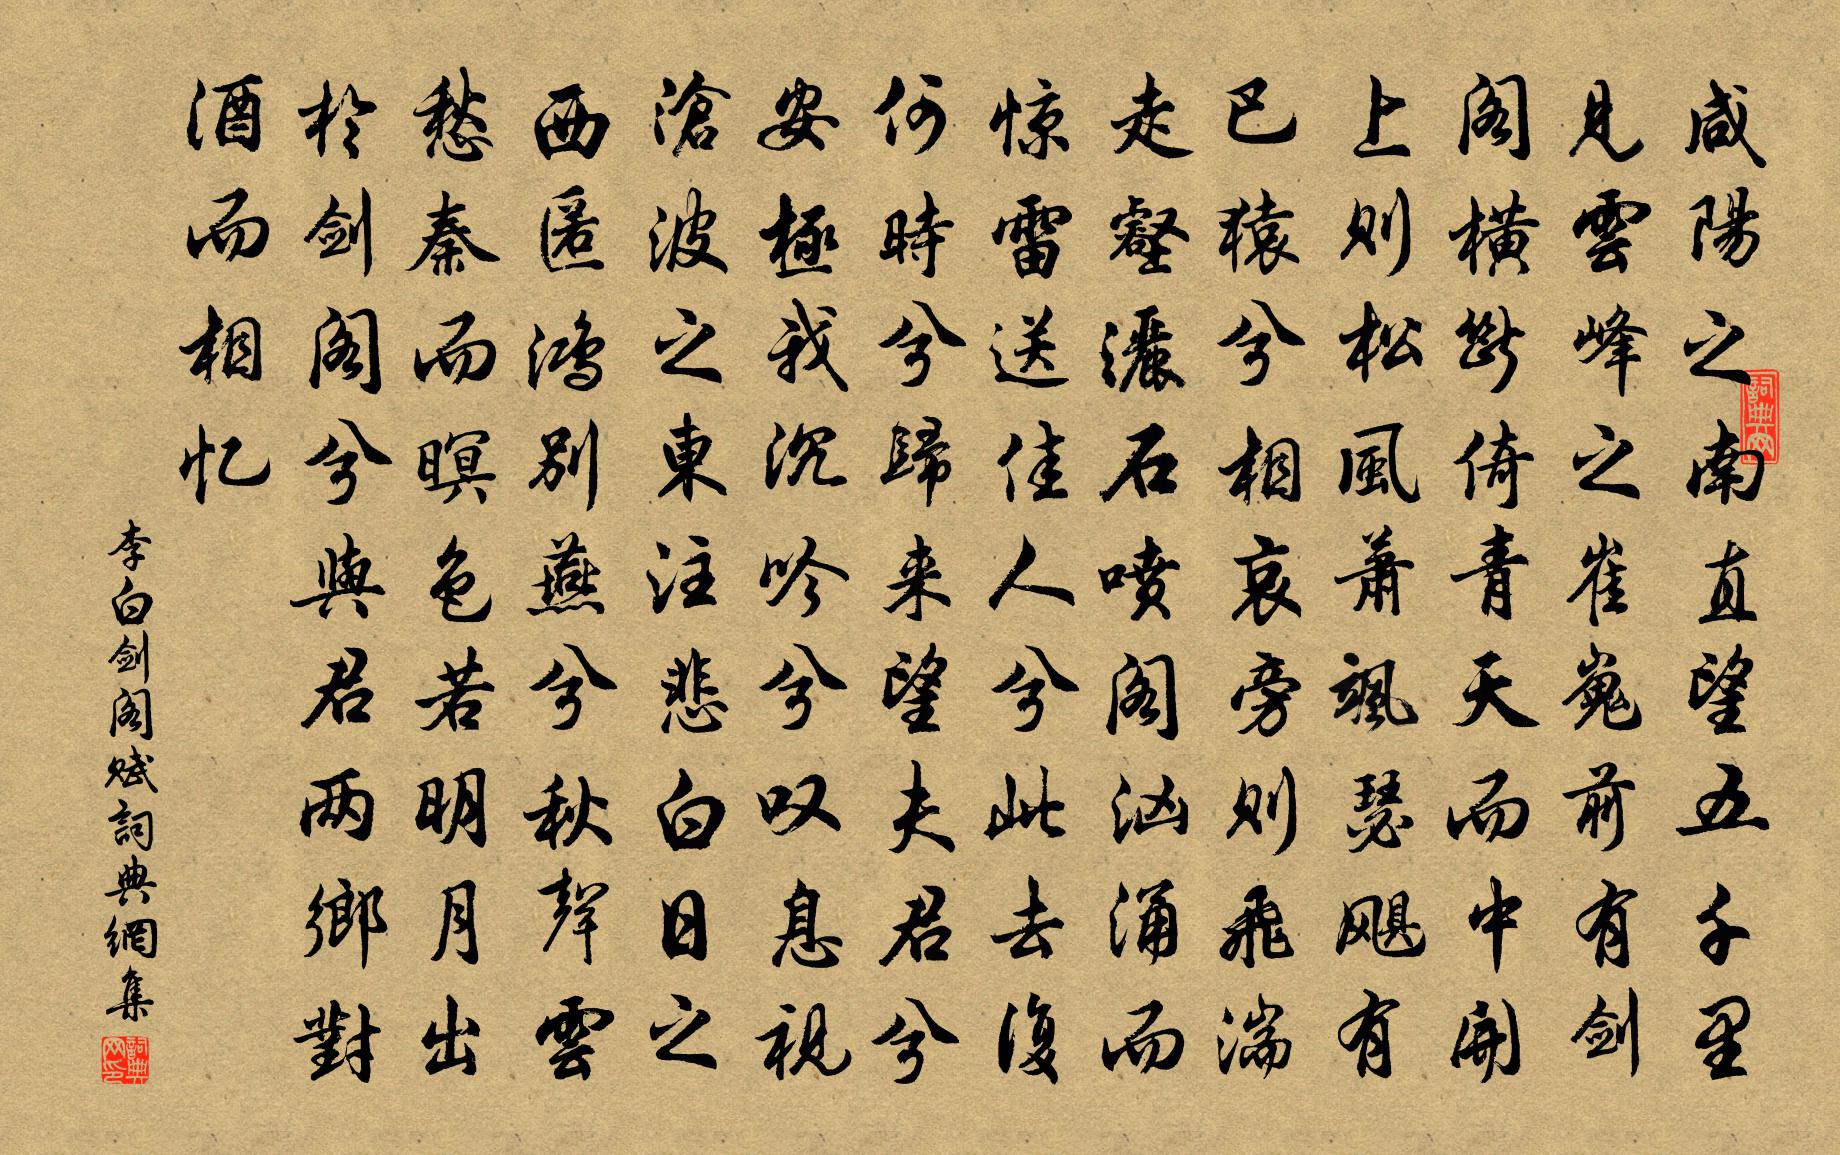 咸陽之南直望五千里
見雲峰之崔嵬前有剑
阁橫斷倚青天而中開
上则松風萧飒瑟飓有
巴猿兮相哀旁则飛湍
走壑灑石喷阁汹涌而
惊雷送佳人兮此去復
何時兮歸来望夫君兮
安極我沉吟兮叹息視
滄波之東注悲白日之
西匿鸿别燕兮秋聲雲
愁秦而暝色若明月出
於剑阁兮與君两鄉對
酒而相忆
李白剑阁赋詞典網集
詞典网
詞典网印